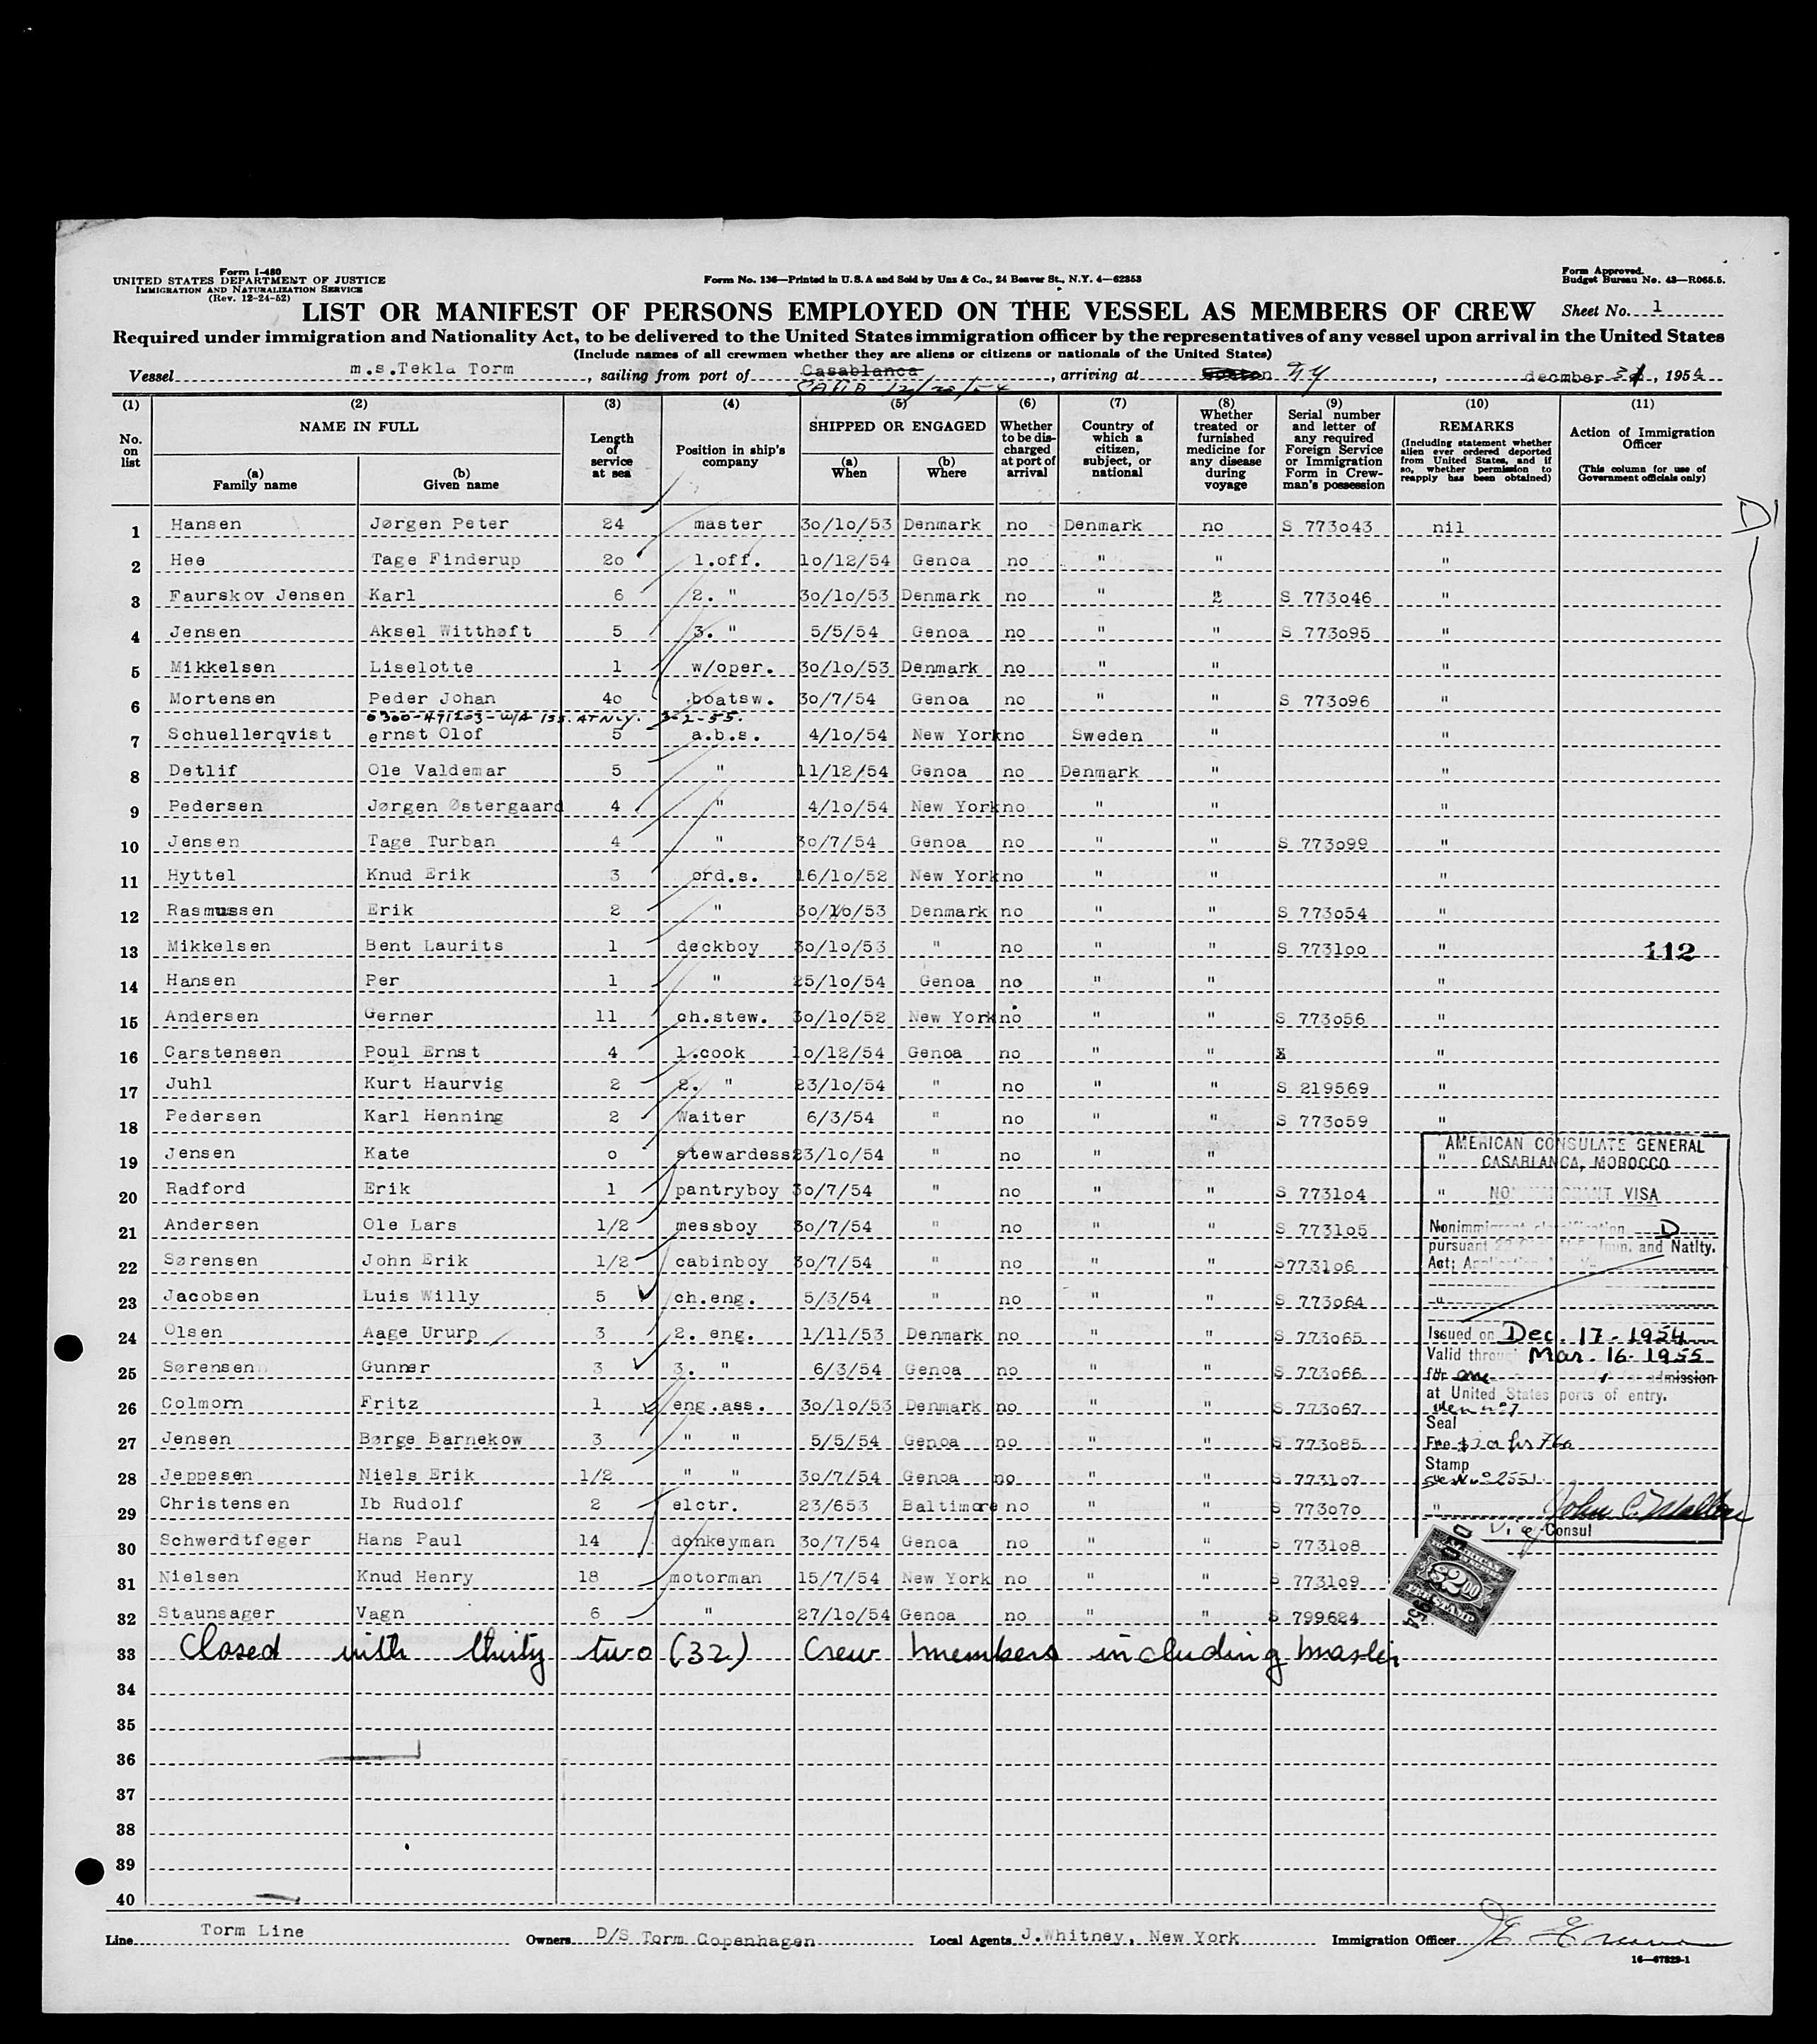 Form I-480
UNITED STATES DEPARTMENT OF JUSTICE
IMMIGRATION AND NATURALIZATION SERVICE
(Rev. 12-24-52)
Form No. 136—Printed in U.S.A and Sold by Unz & Co., 24 Beaver St., N.Y. 4—62353
Form Approved.
Budget Bureau No. 43—R065.5.
LIST OR MANIFEST OF PERSONS EMPLOYED ON THE VESSEL AS MEMBERS OF CREW
Sheet No. 1
Required under immigration and Nationality Act, to be delivered to the United States immigration officer by the representatives of any vessel upon arrival in the United States
(Include names of all crewmen whether they are aliens or citizens or nationals of the United States)
Vessel m.s.Tekla Torm, sailing from port of Casablanca, arriving at NY, decmber 31, 1954
(1) (2) (3) (4) (5) (6) (7) (8) (9) (10) (11)
No. on list
NAME IN FULL
(a) Family name
(b) Given name
Length of service at sea
Position in ship's company
SHIPPED OR ENGAGED
(a) When
(b) Where
Whether to be discharged at port of arrival
Country of which a citizen, subject, or national
Whether treated or furnished medicine for any disease during voyage
Serial number and letter of any required Foreign Service or Immigration Form in Crewman's possession
REMARKS
(Including statement whether alien ever ordered deported from United States, and if so, whether permission to reapply has been obtained)
Action of Immigration Officer
(This column for use of Government officials only)
D1
1 Hansen Jørgen Peter 24 master 30/10/53 Denmark no Denmark no S 773043 nil
2 Hee Tage Finderup 20 1.off. 10/12/54 Genoa no " " "
3 Faurskov Jensen Karl 6 2. " 30/10/53 Denmark no " " S 773046 "
4 Jensen Aksel Witthøft 5 3. " 5/5/54 Genoa no " " S 773095 "
5 Mikkelsen Liselotte 1 w/oper. 30/10/53 Denmark no " " "
6 Mortensen Peder Johan 40 boatsw. 30/7/54 Genoa no " " S 773096 "
0300-471203-W/A ISS. AT N.Y. 3-2-55.
7 Schuellerqvist ernst Olof 5 a.b.s. 4/10/54 New York no Sweden " "
8 Detlif Ole Valdemar 5 " 11/12/54 Genoa no Denmark " "
9 Pedersen Jørgen Østergaard 4 " 4/10/54 New York no " " "
10 Jensen Tage Turban 4 " 30/7/54 Genoa no " " S 773099 "
11 Hyttel Knud Erik 3 ord.s. 16/10/52 New York no " " "
12 Rasmussen Erik 2 " 30/10/53 Denmark no " " S 773054 "
13 Mikkelsen Bent Laurits 1 deckboy 30/10/53 " no " " S 773100 " 112
14 Hansen Per 1 " 25/10/54 Genoa no " " "
15 Andersen Gerner 11 ch.stew. 30/10/52 New York no " " S 773056 "
16 Carstensen Poul Ernst 4 1.cook 10/12/54 Genoa no " " "
17 Juhl Kurt Haurvig 2 2. " 23/10/54 " no " " S 219569 "
18 Pedersen Karl Henning 2 Waiter 6/3/54 " no " " S 773059 "
19 Jensen Kate 0 stewardess 23/10/54 " no " " "
20 Radford Erik 1 pantryboy 30/7/54 " no " " S 773104 "
21 Andersen Ole Lars 1/2 messboy 30/7/54 " no " " S 773105
22 Sørensen John Erik 1/2 cabinboy 30/7/54 " no " " S773106
23 Jacobsen Luis Willy 5 ch.eng. 5/3/54 " no " " S 773064 "
24 Olsen Aage Ururp 3 2. eng. 1/11/53 Denmark no " " S 773065
25 Sørensen Gunner 3 3. " 6/3/54 Genoa no " " S 773066
26 Colmorn Fritz 1 eng.ass. 30/10/53 Denmark no " " S 773067
27 Jensen Børge Barnekow 3 " " 5/5/54 Genoa no " " S 773085
28 Jeppesen Niels Erik 1/2 " " 30/7/54 Genoa no " " S 773107
29 Christensen Ib Rudolf 2 elctr. 23/653 Baltimore no " " S 773070 "
30 Schwerdtfeger Hans Paul 14 donkeyman 30/7/54 Genoa no " " S 773108
31 Nielsen Knud Henry 18 motorman 15/7/54 New York no " " S 773109
32 Staunsager Vagn 6 " 27/10/54 Genoa no " " S 799624
33 Closed with thirty two (32) Crew members including master
34
35
36
37
38
39
40
AMERICAN CONSULATE GENERAL
CASABLANCA, MOROCCO
NONIMMIGRANT VISA
Nonimmigrant classification D
pursuant Imm. and Natlty.
Act; Application
Issued on Dec. 17 - 1954
Valid through Mar. 16. 1955
for one admission
at United States ports of entry.
Seal
Fee
Stamp
Consul
$2.00
FEE STAMP
Line Torm Line Owners D/S Torm Copenhagen Local Agents J.Whitney, New York Immigration Officer
16—67829-1